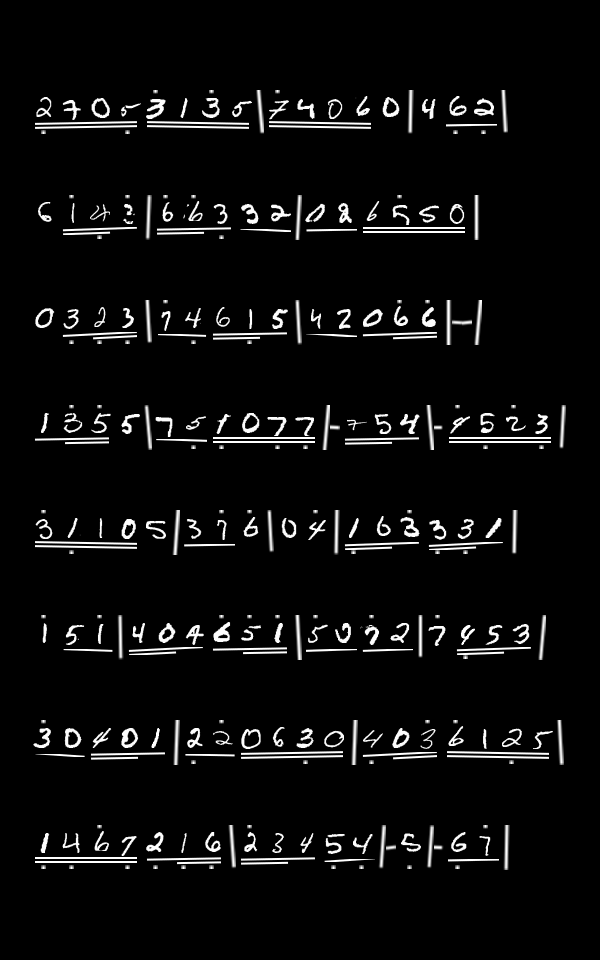 2705 3135|74060|462
6143|66332|0286550
0323|74615|42066|–
1355|751077|-754|-4523
31105|376|04|163331
151|404651|5072|7453
30401|220630|4036125
1467216|23454|-5|-67